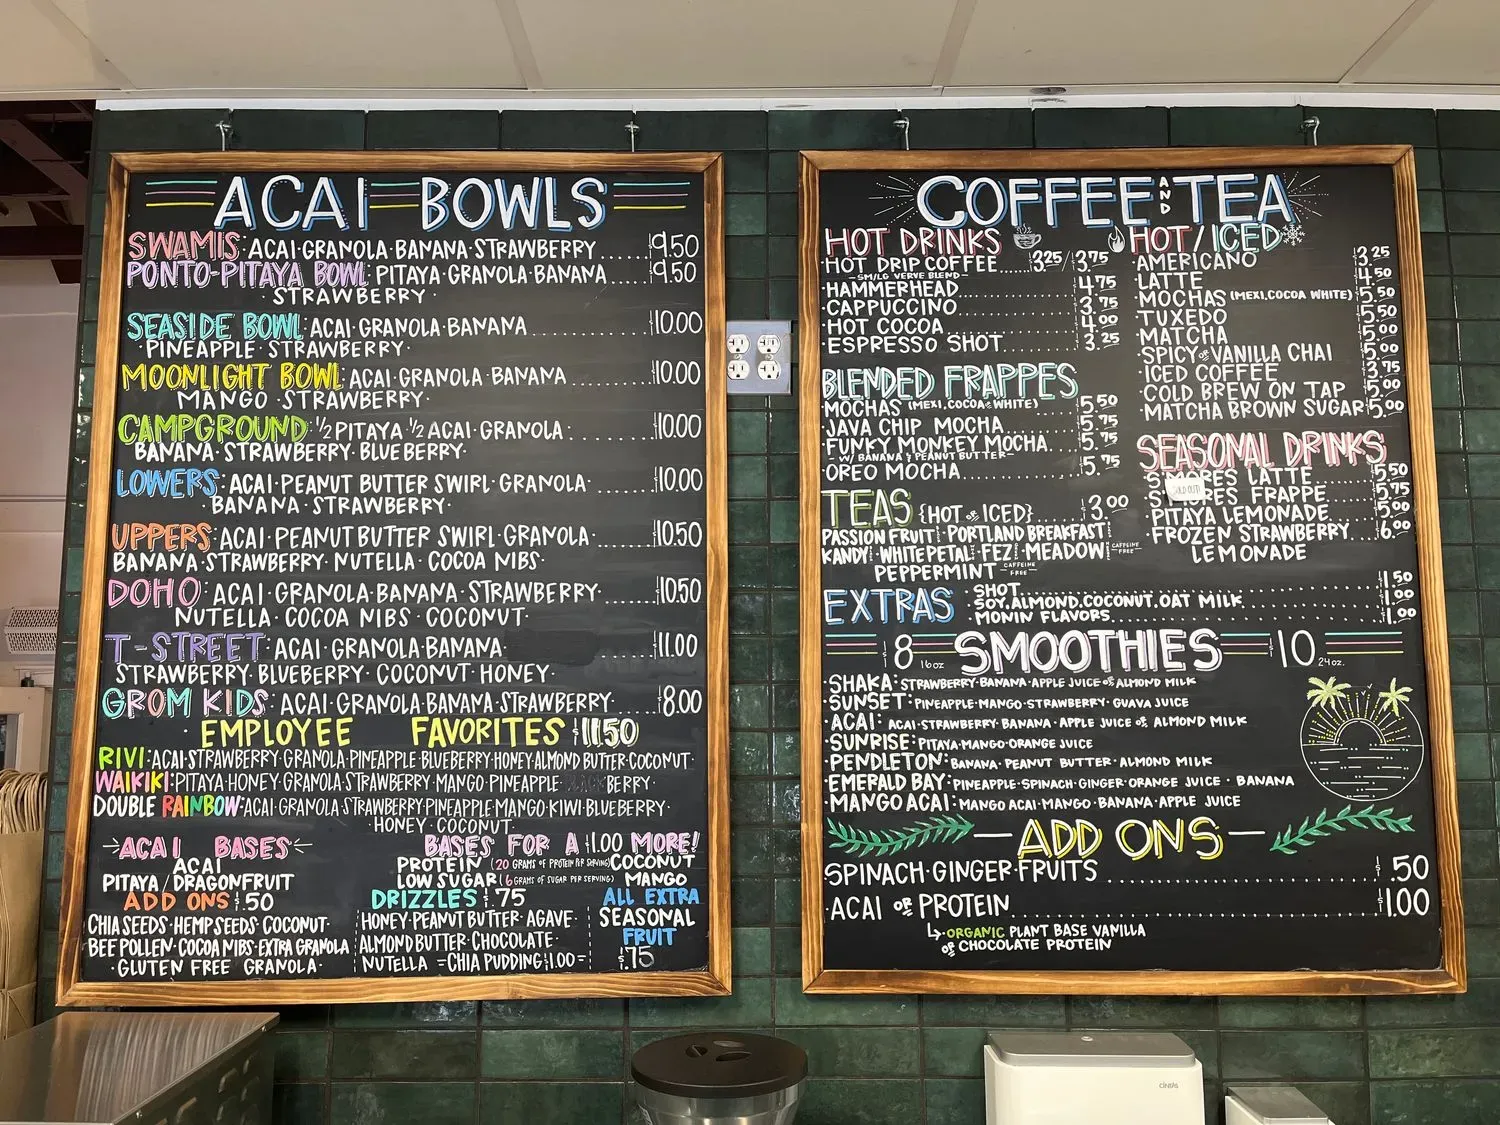 ACAI BOWLS
SWAMIS: ACAI·GRANOLA·BANANA·STRAWBERRY ..... $9.50
PONTO-PITAYA BOWL: PITAYA·GRANOLA·BANANA $9.50
·STRAWBERRY·
SEASIDE BOWL: ACAI·GRANOLA·BANANA ..... $10.00
·PINEAPPLE·STRAWBERRY·
MOONLIGHT BOWL: ACAI·GRANOLA·BANANA ..... $10.00
MANGO·STRAWBERRY·
CAMPGROUND: 1/2 PITAYA 1/2 ACAI·GRANOLA· ..... $10.00
BANANA·STRAWBERRY·BLUEBERRY·
LOWERS: ACAI·PEANUT BUTTER SWIRL·GRANOLA· ..... $10.00
·BANANA·STRAWBERRY·
UPPERS: ACAI·PEANUT BUTTER SWIRL·GRANOLA· ..... $10.50
BANANA·STRAWBERRY·NUTELLA·COCOA NIBS·
DOHO: ACAI·GRANOLA·BANANA·STRAWBERRY· ..... $10.50
NUTELLA·COCOA NIBS·COCONUT·
T-STREET: ACAI·GRANOLA·BANANA· ..... $11.00
STRAWBERRY·BLUEBERRY·COCONUT·HONEY·
GROM KIDS: ACAI·GRANOLA·BANANA·STRAWBERRY· ..... $8.00
·EMPLOYEE FAVORITES $11.50
RIVI: ACAI·STRAWBERRY·GRANOLA·PINEAPPLE·BLUEBERRY·HONEY·ALMOND BUTTER·COCONUT·
WAIKIKI: PITAYA·HONEY·GRANOLA·STRAWBERRY·MANGO·PINEAPPLE· BERRY·
DOUBLE RAINBOW: ACAI·GRANOLA·STRAWBERRY·PINEAPPLE·MANGO·KIWI·BLUEBERRY·
HONEY·COCONUT
ACAI BASES
ACAI
PITAYA/DRAGONFRUIT
BASES FOR A $1.00 MORE!
PROTEIN (20 GRAMS OF PROTEIN PER SERVING) COCONUT
LOW SUGAR (6 GRAMS OF SUGAR PER SERVING) MANGO
ADD ONS $.50
CHIA SEEDS·HEMP SEEDS·COCONUT·
BEE POLLEN·COCOA NIBS·EXTRA GRANOLA
·GLUTEN FREE GRANOLA·
DRIZZLES $.75
HONEY·PEANUT BUTTER·AGAVE·
ALMOND BUTTER·CHOCOLATE·
NUTELLA =CHIA PUDDING $1.00=
ALL EXTRA
SEASONAL
FRUIT
$.75
COFFEE AND TEA
HOT DRINKS
HOT DRIP COFFEE ..... $3.25/$3.75
-SM/LG VERVE BLEND-
·HAMMERHEAD ..... $4.75
·CAPPUCCINO ..... $3.75
·HOT COCOA ..... $4.00
·ESPRESSO SHOT ..... $3.25
HOT/ICED
·AMERICANO $3.25
·LATTE $4.50
·MOCHAS (MEXI, COCOA WHITE) $5.50
·TUXEDO $5.50
·MATCHA $5.00
·SPICY OR VANILLA CHAI $5.00
·ICED COFFEE $3.75
·COLD BREW ON TAP $5.00
·MATCHA BROWN SUGAR $5.00
BLENDED FRAPPES
·MOCHAS (MEXI, COCOA OR WHITE) $5.50
·JAVA CHIP MOCHA $5.75
·FUNKY MONKEY MOCHA $5.75
-W/ BANANA & PEANUT BUTTER-
·OREO MOCHA $5.75
SEASONAL DRINKS
S'MORES LATTE $5.50
SOLD OUT!
S'MORES FRAPPE $5.75
·PITAYA LEMONADE $5.00
·FROZEN STRAWBERRY $6.00
LEMONADE
TEAS {HOT OR ICED} ..... $3.00
PASSION FRUIT PORTLAND BREAKFAST
KANDY WHITE PETAL FEZ MEADOW CAFFEINE -FREE-
PEPPERMINT CAFFEINE -FREE-
EXTRAS
·SHOT ..... $1.50
·SOY, ALMOND, COCONUT, OAT MILK ..... $1.00
·MONIN FLAVORS ..... $1.00
$8 16oz SMOOTHIES $10 24oz.
·SHAKA: STRAWBERRY·BANANA·APPLE JUICE OR ALMOND MILK
·SUNSET: PINEAPPLE·MANGO·STRAWBERRY·GUAVA JUICE
·ACAI: ACAI·STRAWBERRY·BANANA·APPLE JUICE OR ALMOND MILK
·SUNRISE: PITAYA·MANGO·ORANGE JUICE
·PENDLETON: BANANA·PEANUT BUTTER·ALMOND MILK
·EMERALD BAY: PINEAPPLE·SPINACH·GINGER·ORANGE JUICE·BANANA
·MANGO ACAI: MANGO ACAI·MANGO·BANANA·APPLE JUICE
—ADD ONS—
SPINACH·GINGER·FRUITS ..... $.50
·ACAI OR PROTEIN ..... $1.00
ORGANIC PLANT BASE VANILLA
OR CHOCOLATE PROTEIN
CINTAS